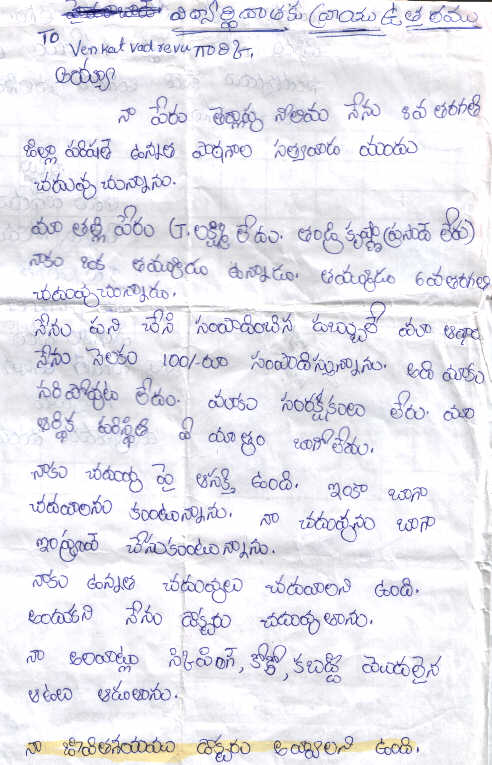 విద్యార్థి దాతకు వ్రాయు ఉత్తరము
TO
Venkat vadrevu గారికి.
అయ్యా
నా పేరు గౌతమి నేను 8వ తరగతి
జిల్లా పరిషత్ ఉన్నత పాఠశాల సత్యవాడ యందు
చదువు చున్నాను.
మా తల్లి పేరు (T. లక్ష్మి లేదు. తండ్రి కృష్ణా ప్రసాద్ లేరు)
నాకు ఒక తమ్ముడు ఉన్నాడు. తమ్ముడు 6వ తరగతి
చదువు చున్నాడు.
నేను పని చేసి సంపాదించిన డబ్బుతో మా
నేను నెలకు 100/-రూ సంపాదిస్తున్నాను. అది మాకు
సరిపోవుట లేదు. మాకు సంరక్షకులు లేరు. మా
ఆర్థిక పరిస్థితి ఏ మాత్రం బాగోలేదు.
నాకు చదువు పై ఆసక్తి ఉంది. ఇంకా బాగా
చదవాలను కుంటున్నాను. నా చదువును బాగా
చేసుకుంటున్నాను.
నాకు ఉన్నత చదువులు చదవాలని ఉంది.
అందుకని నేను డాక్టరు చదువుతాను.
నా అలవాట్లు స్కిపింగ్, కోకో, కబడ్డీ మొదలైన
ఆటలు ఆడుతాను.
నా జీవితాశయము డాక్టరు అవ్వాలని ఉంది.